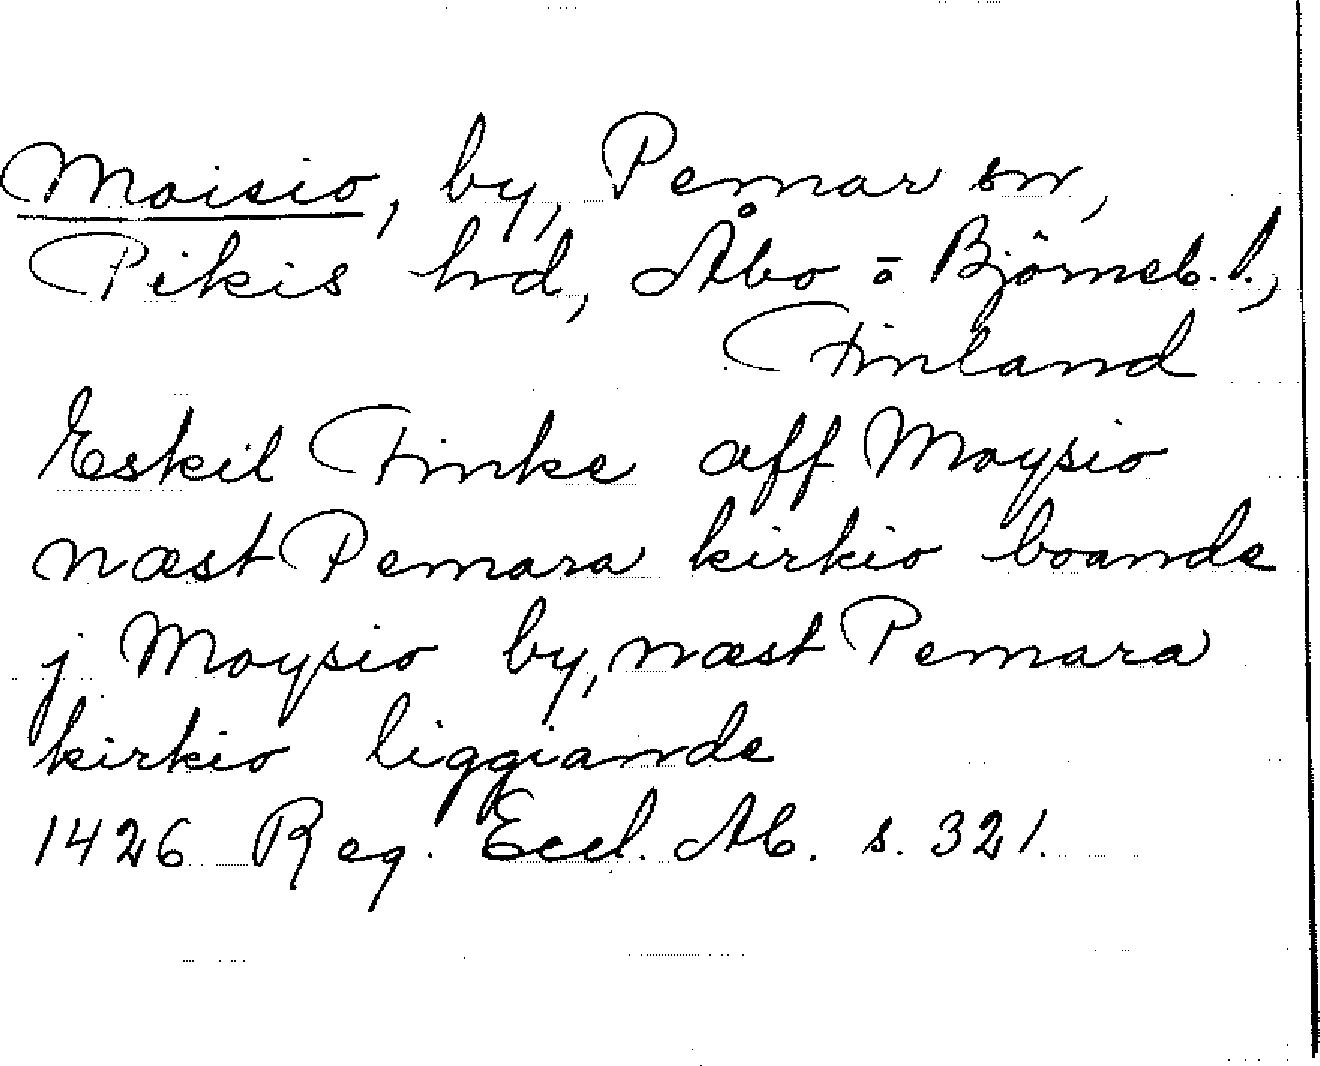 Moisio, by, Pemar sn,
Pikis hd, Åbo o Björneb. l.,
Finland
Eskil Finke aff Moysio
næst Pemara kirkio boande
j Moysio by, næst Pemara
kirkio liggiande
1426 Reg. Eccl. Ab. s. 321.